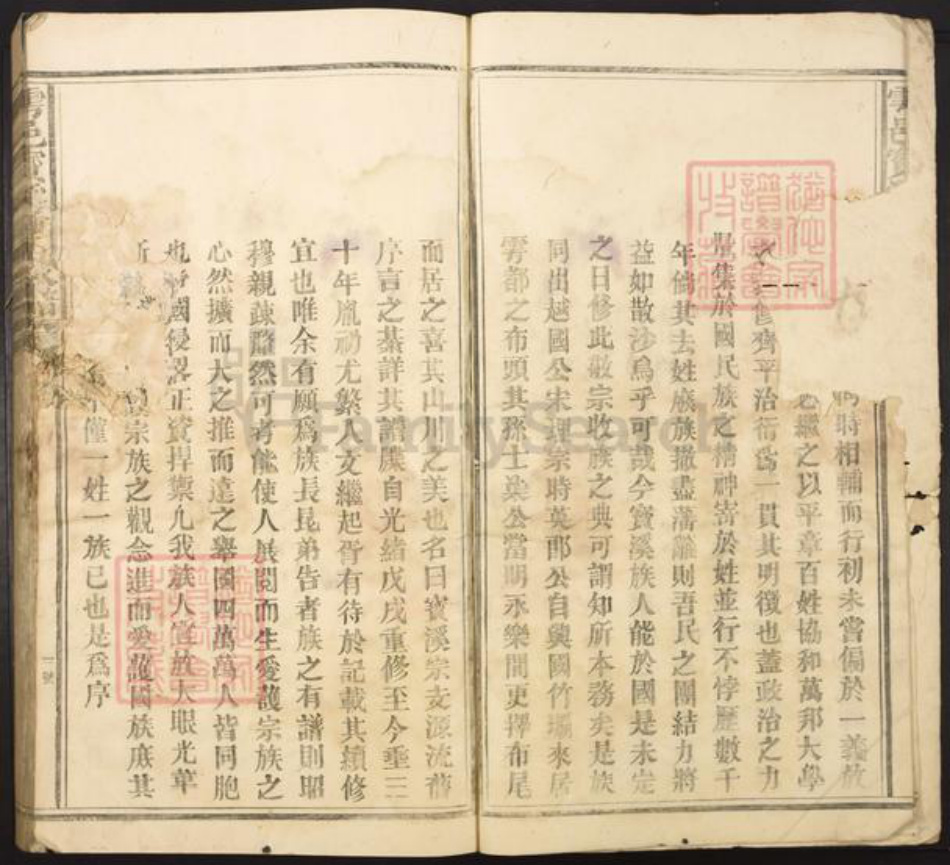 時相輔而行初未嘗偏於一義故
繼之以平章百姓協和萬邦大學
修齊平治衍為一貫其明徵也蓋政治之力
集於國民族之精神寄於姓並行不悖歷數千
年倘其去姓廢族撤盡藩籬則吾民之團結力將
益如散沙烏乎可哉今寶溪族人能於國是未定
之日修此敬宗收族之典可謂知所本務矣是族
同出越國公宋理宗時英郎公自興國竹壩來居
雩都之布頭其孫士染公當明永樂間更擇布尾
而居之喜其山川之美也名曰寶溪宗支源流舊
序言之綦詳其譜牒自光緒戊戌重修至今垂三
十年胤礽尤繁人文繼起胥有待於記載其續修
宜也唯余有願為族長昆弟告者族之有譜則昭
穆親疎豁然可考能使人展閱而生愛護宗族之
心然擴而大之推而遠之舉國四萬萬人皆同胞
也外國侵畧正資捍禦凡我族人宜放大眼光革
新 宗族之觀念進而愛護國族庶其
不僅一姓一族已也是為序
雩邑寶
雩邑
一號
FamilySearch